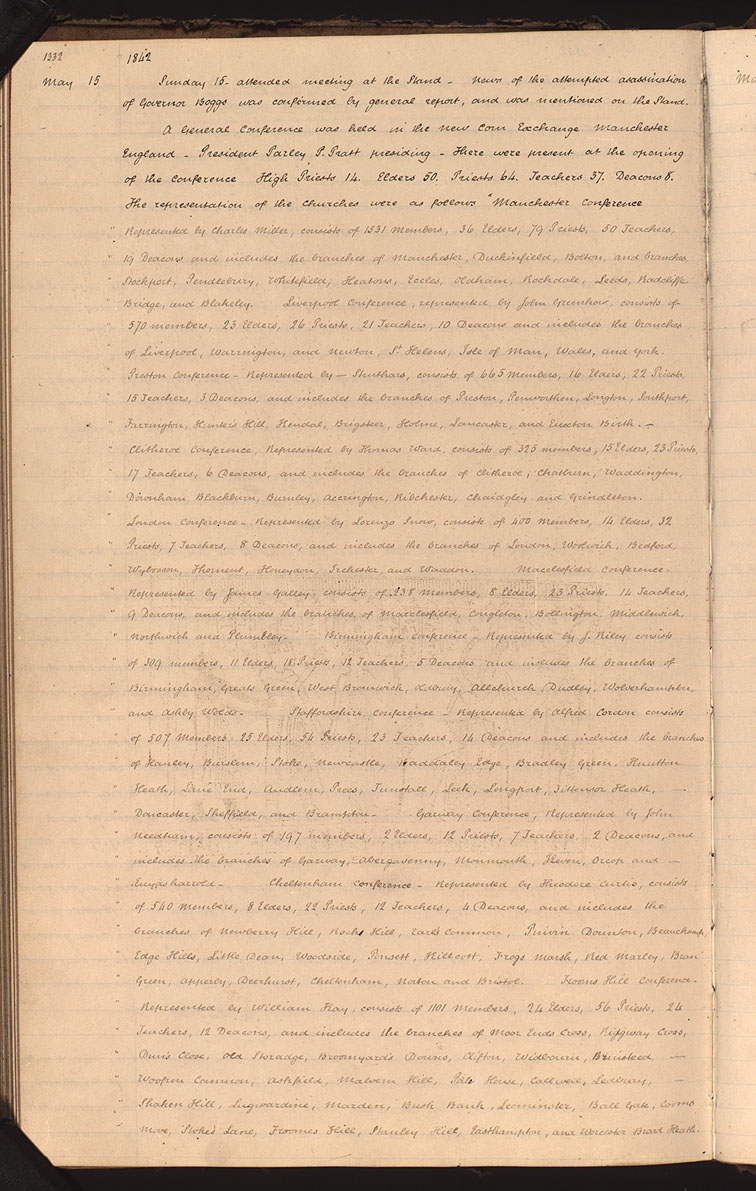 1332 1842
May 15 Sunday 15- attended meeting at the Stand - News of the attempted asassination
of Governor Boggs was confirmed by general report, and was mentioned on the Stand.
A General Conference was held in the new Corn Exchange Manchester
England - President Parley P. Pratt presiding - There were present at the opening
of the Conference High Priests 14. Elders 50. Priests 64. Teachers 37. Deacons 8.
The representation of the churches were as follows "Manchester Conference
" Represented by Charles Miller, consists of 1531 Members, 36 Elders, 79 Priests, 50 Teachers,
" 19 Deacons and includes the branches of Manchester, Duckinfield, Bolton, and branches,
" Stockport, Pendlebury, Whitefield, Heatons, Eccles, Oldham, Rochdale, Leeds, Radcliffe
" Bridge, and Blakeley. Liverpool Conference, represented by John Greenhow, consists of
" 570 members, 23 Elders, 26 Priests, 21 Teachers, 10 Deacons and includes the branches
" of Liverpool, Warrington, and Newton, St Helens, Isle of Man, Wales, and York.
" Preston Conference - Represented by - Struthars, consists of 665 Members, 16 Elders, 22 Priests,
" 15 Teachers, 3 Deacons, and includes the branches of Preston, Penworthen, Longton, Southport,
" Farrington, Hunter's Hill, Kendal, Brigsteer, Holme, Lancaster, and Euxton Birth. -
" Clitheroe Conference, Represented by Thomas Ward, consists of 325 members, 15 Elders, 23 Priests,
" 17 Teachers, 6 Deacons, and includes the branches of Clitheroe, Chatburn, Waddington,
" Downham, Blackburn, Burnley, Accrington, Ribchester, Chaidgley and Grindleton.
" London Conference - Represented by Lorenzo Snow, consists of 400 Members, 14 Elders, 32
" Priests, 7 Teachers, 8 Deacons, and includes the branches of London, Woolwich, Bedford,
" Wyboson, Thorncut, Honeydon, Irchester, and Waddon. Macclesfield Conference.
" Represented by James Galley, consists of 238 Members, 8 Elders, 23 Priests, 14 Teachers,
" 9 Deacons, and includes the branches, of Macclesfield, Congleton, Bollington, Middlewich,
" Northwich and Plumbley. Birmingham Conference - Represented by J. Riley consists
" of 309 members, 11 Elders, 18 Priests, 12 Teachers, 5 Deacons and includes the branches of
" Birmingham, Greats Green, West Bromwich, Allchurch, Dudley, Wolverhampton,
" and Ashby Wolds - Staffordshire Conference - Represented by Alfred Cordon consists
" of 507 Members 25 Elders, 54 Priests, 23 Teachers, 14 Deacons and includes the branches
" of Hanley, Burslem, Stoke, Newcastle, Baddaley Edge, Bradley Green, Knutton
" Heath, Lane End, Audlem, Prees, Tunstall, Leek, Longport, Tittensor Heath, -
" Doncaster, Sheffield, and Brampton - Garway Conference, Represented by John
" Needham, consists of 197 members, 2 Elders, 12 Priests, 7 Teachers, 2 Deacons, and
" includes the branches of Garway, Abergavenny, Monmouth, Keven, Orcop and -
" Euyasharold - Cheltenham Conference - Represented by Theodore Curtis, consists
" of 540 Members, 8 Elders, 22 Priests, 12 Teachers, 4 Deacons, and includes the
" branches of Newberry Hill, Rocks Hill, Earl's Common, Pinvin Dounton, Beauchamp,
" Edge Hills, Little Dean, Woodside, Ponsett, Hillcott, Frogs Marsh, Red Marley, Bran
" Green, Apperly, Deerhurst, Cheltenham, Norton and Bristol. Frooms Hill Conference -
" Represented by William Kay, consists of 1101 Members, 24 Elders, 56 Priests, 24
" Teachers, 12 Deacons, and includes the branches of Moor Ends Cross, Ridgway Cross,
" Dun's Close, Old Storadge, Broomyard's Downs, Clifton, Widbourn, Brinsteed, -
" Woofren Common, Ashfield, Malvern Hill, Pale House, Callwell, Ledbury, -
" Shaken Hill, Lugwardine, Marden, Bush Bank, Leominster, Ball Gate, Cooms
" Move, Stoke's Lane, Froomes Hill, Stanley Hill, Easthampton, and Worcester Broad Heath.
Ma